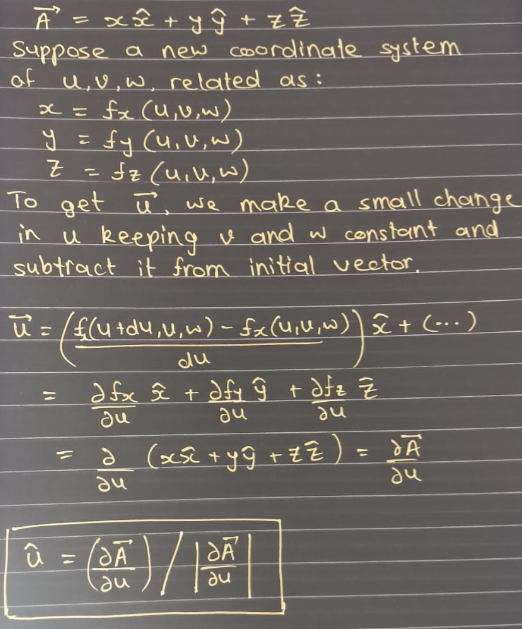 A⃗ = xx̂ + yŷ + zẑ
Suppose a new coordinate system
of u,v,w, related as:
x = fx (u,v,w)
y = fy (u,v,w)
z = fz (u,v,w)
To get u⃗, we make a small change
in u keeping v and w constant and
subtract it from initial vector.
u⃗ = (f(u+du,v,w) - fx(u,v,w) / du) x̂ + (...)
= ∂fx/∂u x̂ + ∂fy/∂u ŷ + ∂fz/∂u ẑ
= ∂/∂u (xx̂ + yŷ + zẑ) = ∂A⃗/∂u
û = (∂A⃗/∂u) / |∂A⃗/∂u|